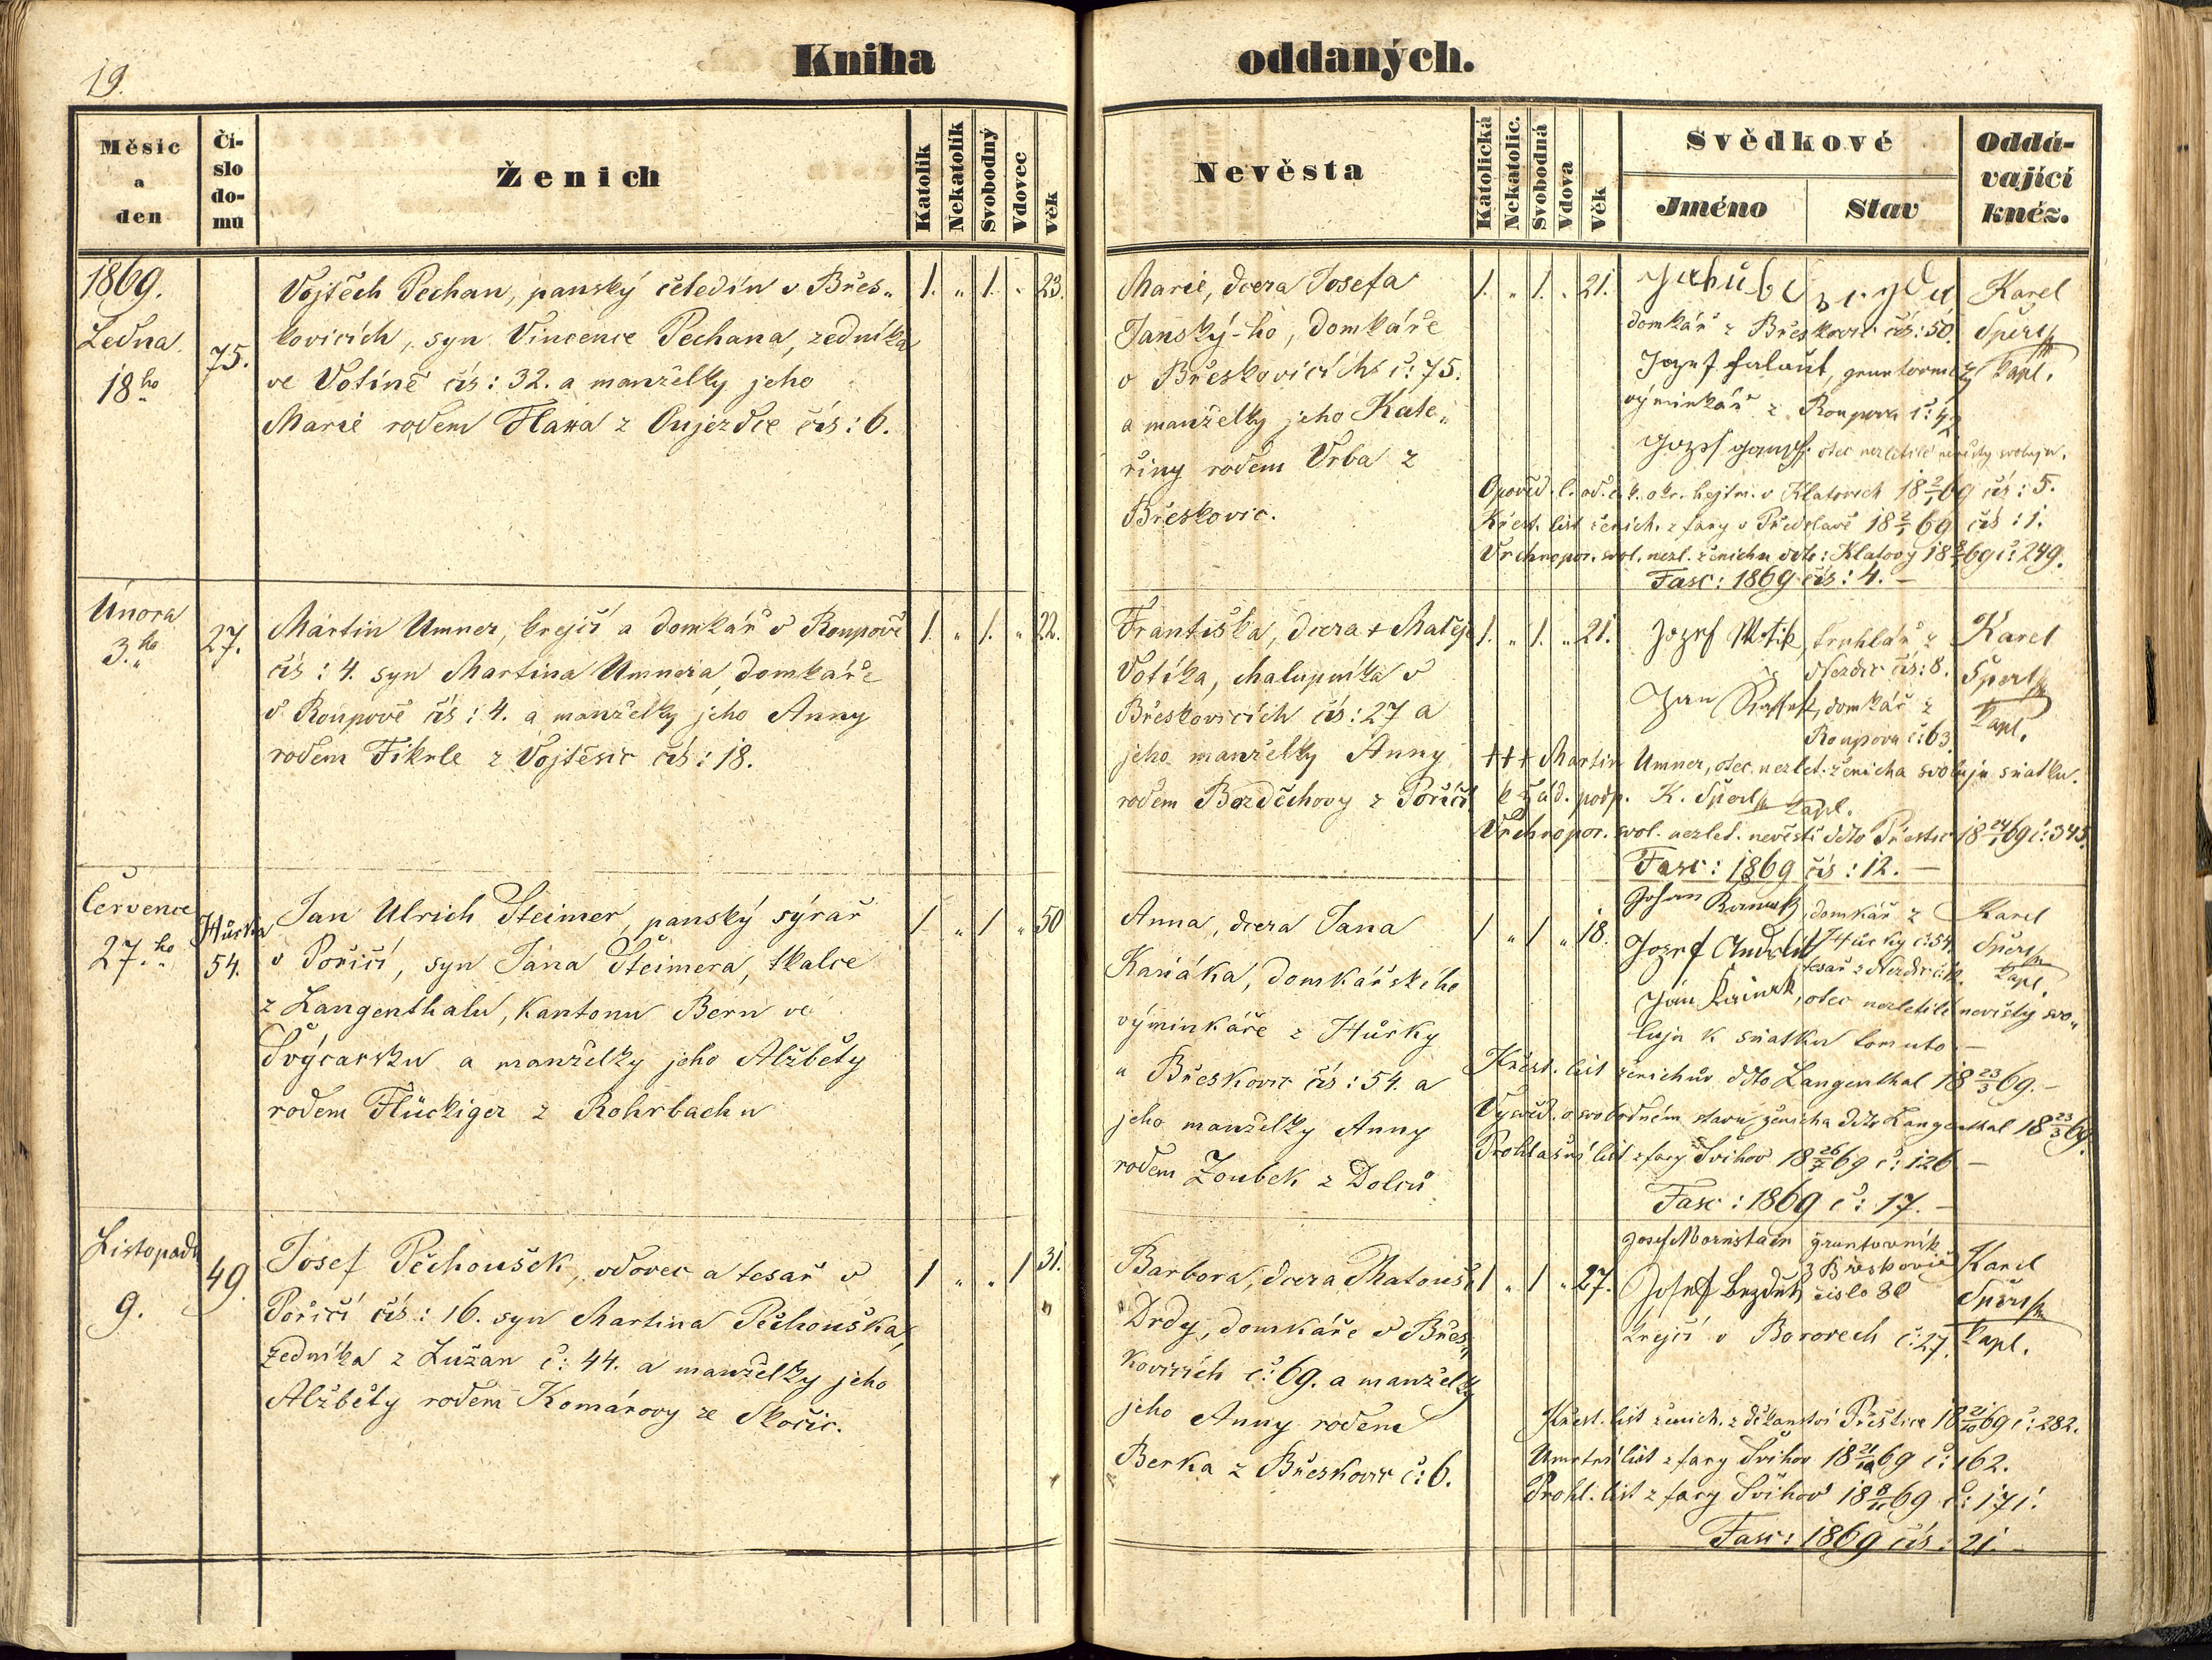 19.
Kniha oddaných.
Měsíc a den
Čí-slo do-mu
Ženich
Katolík
Nekatolík
Svobodný
Vdovec
Věk
Nevěsta
Katolická
Nekatolic.
Svobodná
Vdova
Věk
Svědkové
Jméno
Stav
Oddá-vající kněz.
1869.
Ledna
18ho
75.
Vojtěch Pechan, panský čeledín v Břes„
kovicích, syn Vincence Pechana, zedníka
ve Votíně čís: 32. a manželky jeho
Marie rodem Hana z Oujezdce čís: 6.
1. „ 1. „ 23.
Marie, dcera Josefa
Janský-ho, domkáře
v Břeskovicích č: 75.
a manželky jeho Kate„
řiny rodem Vrba z
Břeskovic.
1. „ 1. „ 21.
Jakub
domkář z Břeskovic čís: 50.
Josef
výminkář z Roupova č: 4
otec nezletilé nevěsty svoluje.
Karel
Šperl
kapl.
Opověd. l. od c. k. okr. hejtm. v Klatovech 18 2/1 69 čís: 5.
Křest. list ženich. z fary v Předslavě 18 2/1 69 čís: 1.
Vrchnopor. svol. nezl. ženichu ddto: Klatovy 18 69 č: 249.
Fasc: 1869 čís: 4. —
Února
3.ho
27.
Martin Umner, krejčí a domkář v Roupově
čís: 4. syn Martina Umnera, domkáře
v Roupově čís: 4. a manželky jeho Anny
rodem Fikrle z Vojtěšic čís: 18.
1. „ 1. „ 22.
Františka, dcera + Matěje
Votíka, chalupníka v
Břeskovicích čís: 27 a
jeho manželky Anny
rodem Bozděchovy z Poříčí
1. „ 1. „ 21.
Jozef Motis, truhlář z
Nezdic čís: 8.
Jan, domkář z
Roupova č: 63.
Karel
Šperl
kapl.
+++ Martin Umner, otec nezlet. ženicha svoluje sňatku.
k žád. podp. K. Šperl kapl.
Vrchnopor. svol. nezlet. nevěstě ddto Přestic 18 24/1 69 č: 345.
Fasc: 1869 čís: 12. —
Července
27.ho
Hůrka
54.
Jan Ulrich Steimer, panský sýrař
v Poříčí, syn Jana Šteimera, tkalce
z Langenthalu, kantonu Bern ve
Švýcarsku a manželky jeho Alžběty
rodem Flückiger z Rohrbachu
1 „ 1 „ 50
Anna, dcera Jana
Kaňáka, domkářského
výminkáře z Hůrky
u Břeskovic čís: 54. a
jeho manželky Anny
rodem Zoubek z Dolců
1 „ 1 „ 18.
Johan, domkář z
Hůrky č. 54.
Jozef
tesař z Nezdic
Jan, otec nezletilé nevěsty svo„
luje k sňatku tomuto. —
Karel
Šperl
kapl.
Křest. list ženichův ddto Langenthal 18 23/3 69. —
Vysvěd. o svobodném stavu ženicha ddto Langenthal 18 23/3 69.
Prohlašní list z fary Švihov 18 26/7 69 č: 126 —
Fasc: 1869 č: 17. —
Listopadu
9.
49.
Josef Pěchoušek, vdovec a tesař v
Poříčí čís: 16. syn Martina Pěchouška,
zedníka z Lužan č: 44. a manželky jeho
Alžběty rodem Komárovy ze Skočic.
1 „ „ 1 31.
Barbora, dcera Matouše
Drdy, domkáře v Břes„
kovicích č: 69. a manželky
jeho Anny rodem
Berka z Břeskovic č: 6.
1 „ 1 „ 27.
Josef Mornstain gruntovník
z Břeskovic
číslo 38
Josef Bezděk
krejčí v Borovech č: 27.
Karel
Šperl
kapl.
Křest. list ženich. z děkanství Přeštice 18 21/10 69 č: 282.
Úmrtní list z fary Švihov 18 21/10 69 č: 162.
Prohl. list z fary Švihov 18 8/11 69 č: 171.
Fasc: 1869 čís: 21. —